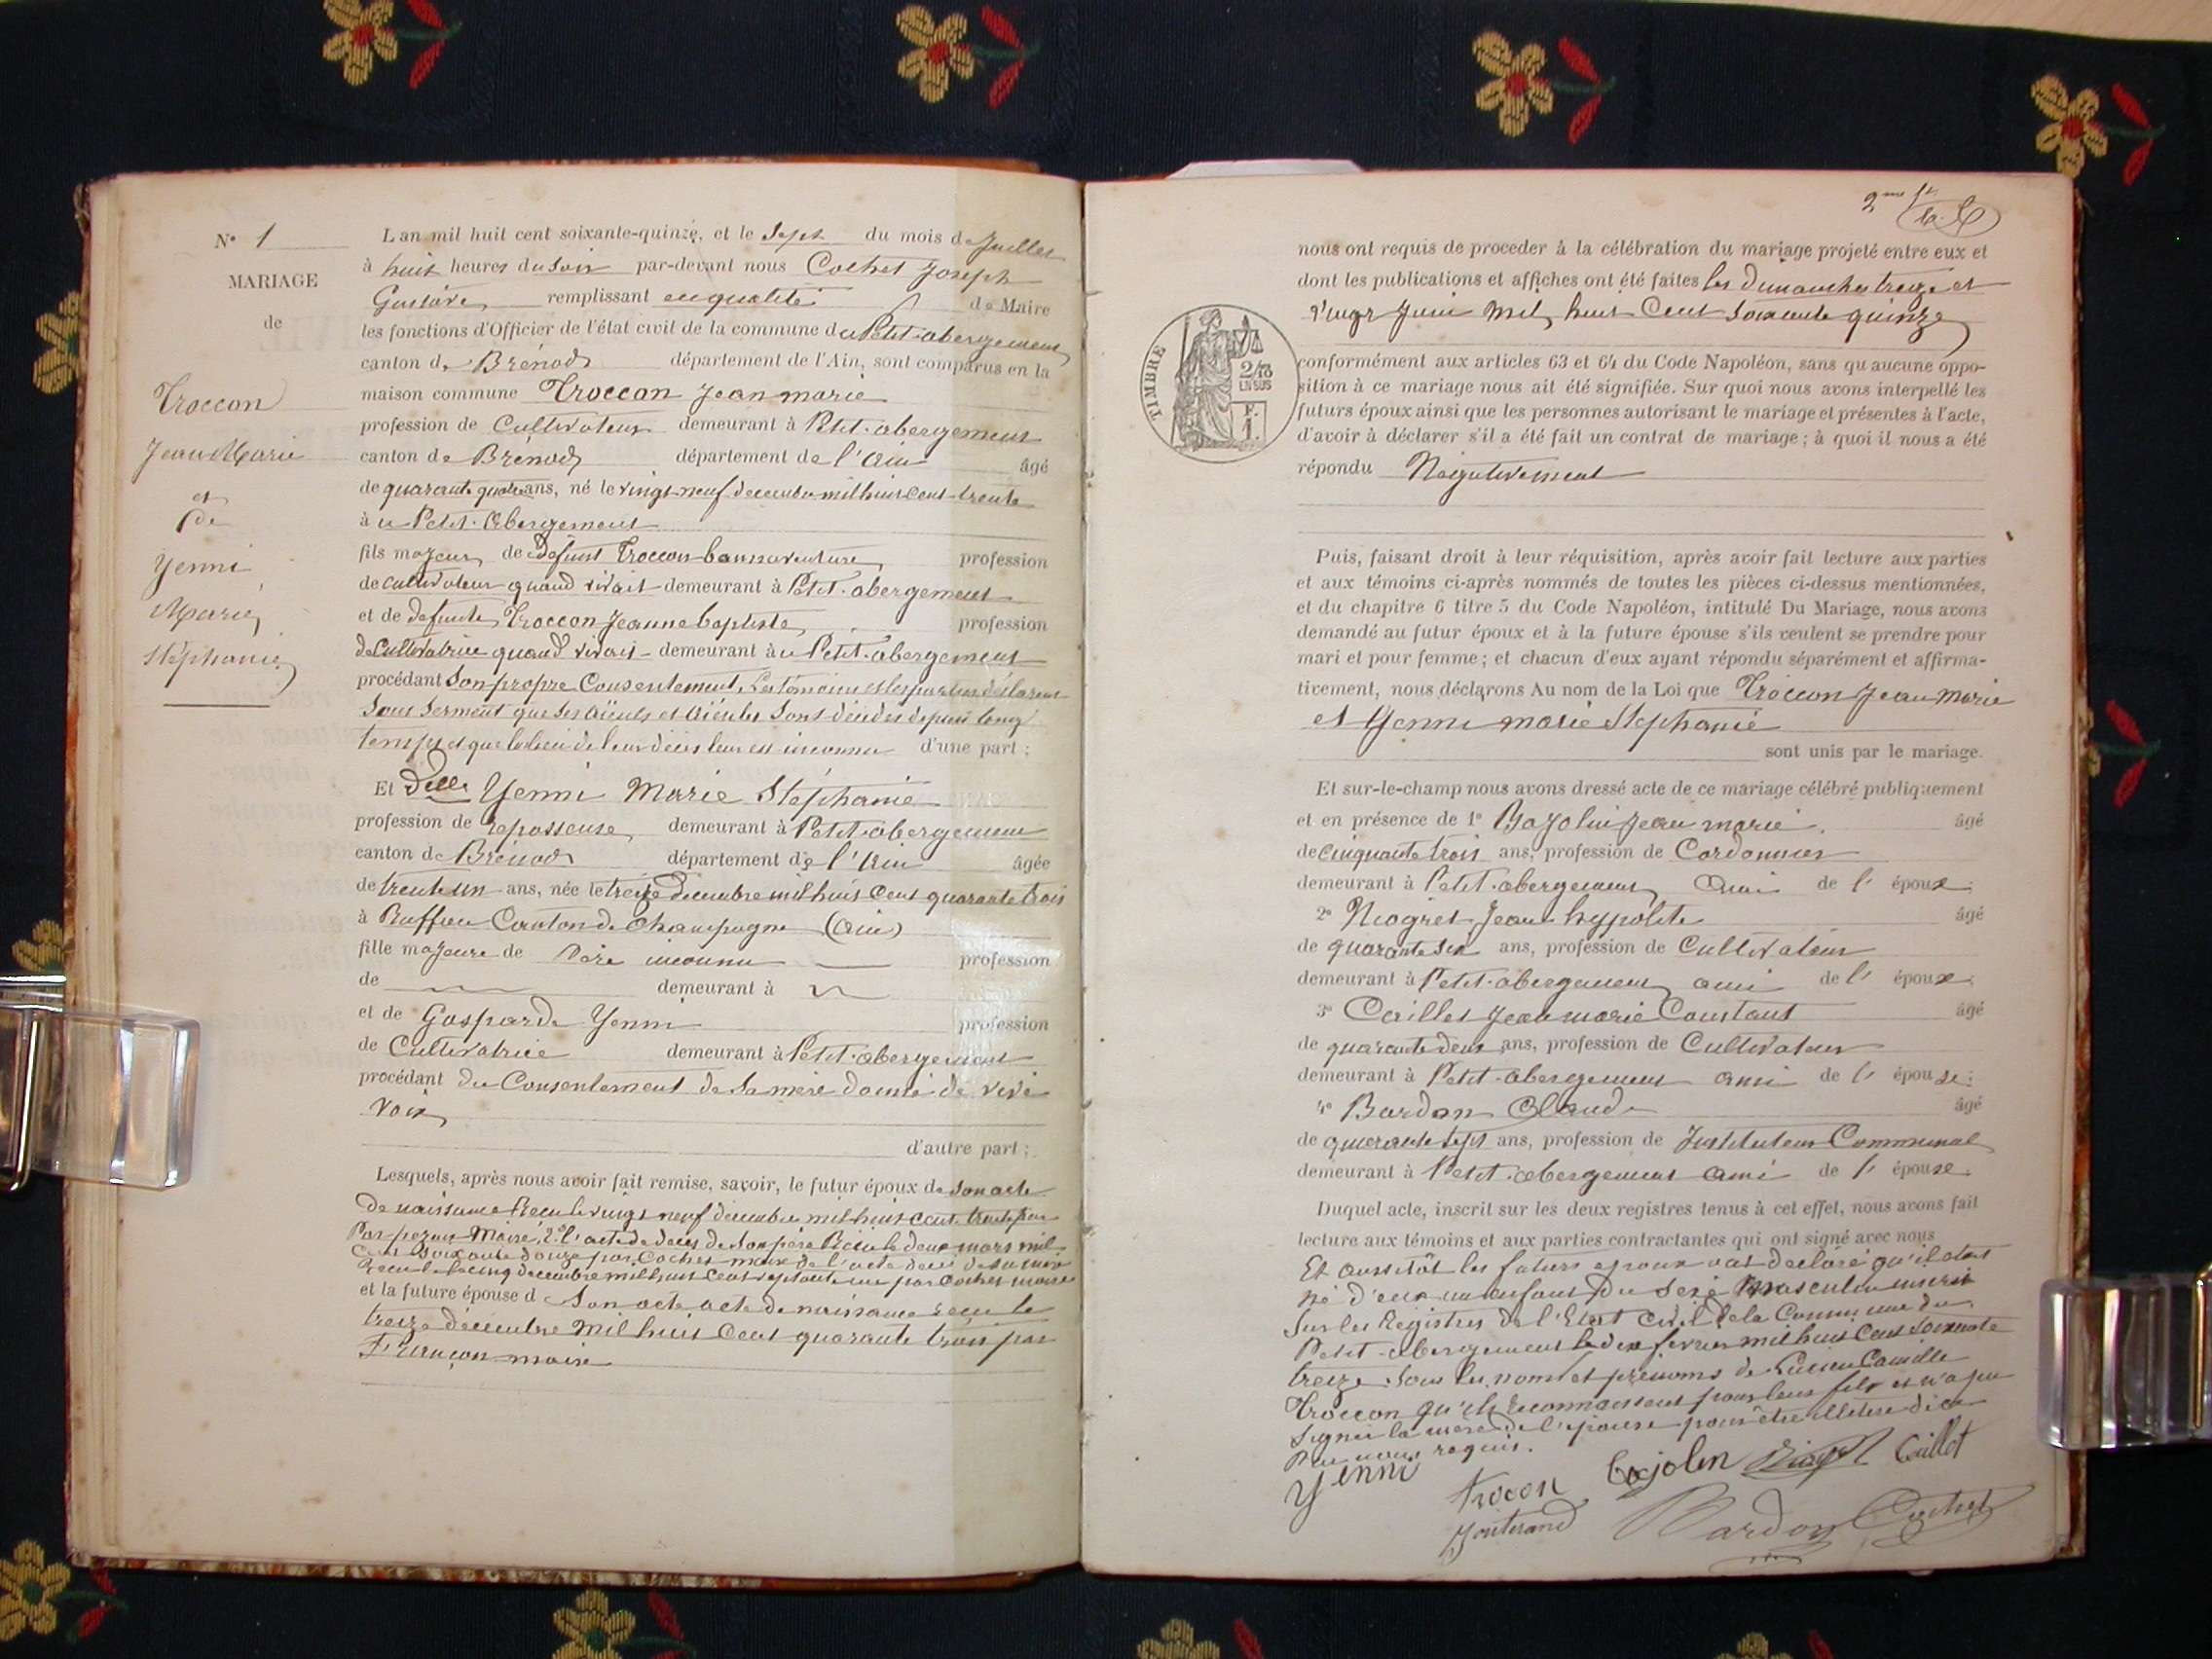 N° 1
MARIAGE
de
Troccon
Jean Marie
et
de
Yenni
Marie
Stéphanie
L'an mil huit cent soixante-quinze, et le Sept du mois de Juillet
à huit heures du Soir par-devant nous Cochet Joseph
Gustave remplissant en qualité de Maire
les fonctions d'Officier de l'état civil de la commune du Petit-abergement
canton de Brénod département de l'Ain, sont comparus en la
maison commune Troccon Jean marie
profession de Cultivateur demeurant à Petit-abergement
canton de Brénod département de l'Ain âgé
de quarante quatre ans, né le vingt-neuf décembre mil huit cent trente
à u Petit-Abergement
fils majeur de défunt Troccon bonnaventure profession
de cultivateur quand vivait demeurant à Petit-abergement
et de defunte Troccon Jeanne baptiste profession
de Cultivatrice quand vivait demeurant à u Petit-abergement
procédant Son propre Consentement, Les témoins et les parties déclarent
Sous Serment que Ses aïeuls et aïeules Sont décédés depuis long
temps et que le lieu de leur décès leur est inconnu d'une part ;
Et Delle Yenni Marie Stéphanie
profession de repasseuse demeurant à Petit-abergement
canton de Brénod département de l'Ain âgée
de trente un ans, née le treize Décembre mil huit Cent quarante trois
à Ruffieu Canton de Champagne (Ain)
fille majeure de Père inconnu profession
de demeurant à
et de Gasparde Yenni profession
de Cultivatrice demeurant à Petit-abergement
procédant du Consentement de Sa mère donné de vive
voix
d'autre part ;
Lesquels, après nous avoir fait remise, savoir, le futur époux de Son acte
de naissance Recu le vingt neuf décembre mil huit cent trente par
maire, 2° l'acte de décès de Son père Recu le deux mars mil
Cent Soixante douze par Cochet maire de l'acte décès de Sa mère
Recu le cinq decembre mil huit cent septante un par Cochet maire
et la future épouse d Son acte acte de naissance recu le
treize décembre mil huit Cent quarante trois par
maire
2me
nous ont requis de proceder à la célébration du mariage projeté entre eux et
dont les publications et affiches ont été faites les Dimanches treize et
vingt Juin Mil huit Cent Soixante quinze
TIMBRE
2/10
EN SUS
F.
1.
conformément aux articles 63 et 64 du Code Napoléon, sans qu'aucune oppo-
sition à ce mariage nous ait été signifiée. Sur quoi nous avons interpellé les
futurs époux ainsi que les personnes autorisant le mariage et présentes à l'acte,
d'avoir à déclarer s'il a été fait un contrat de mariage ; à quoi il nous a été
répondu Négativement
Puis, faisant droit à leur réquisition, après avoir fait lecture aux parties
et aux témoins ci-après nommés de toutes les pièces ci-dessus mentionnées,
et du chapitre 6 titre 5 du Code Napoléon, intitulé Du Mariage, nous avons
demandé au futur époux et à la future épouse s'ils veulent se prendre pour
mari et pour femme ; et chacun d'eux ayant répondu séparément et affirma-
tivement, nous déclarons Au nom de la Loi que Troccon Jean Marie
et Yenni marie Stephanie
sont unis par le mariage.
Et sur-le-champ nous avons dressé acte de ce mariage célébré publiquement
et en présence de 1° Bajolin Jean marie âgé
de Cinquante trois ans, profession de Cordonnier
demeurant à Petit-abergement Ami de l' époux ;
2° Niogret Jean hypolite âgé
de quarante six ans, profession de Cultivateur
demeurant à Petit-abergement ami de l' époux ;
3° Caillet Jean marie Constant âgé
de quarante deux ans, profession de Cultivateur
demeurant à Petit-abergement ami de l' épouse ;
4° Bardon Claude âgé
de quarante sept ans, profession de Instituteur Communal
demeurant à Petit-abergement ami de l' épouse.
Duquel acte, inscrit sur les deux registres tenus à cet effet, nous avons fait
lecture aux témoins et aux parties contractantes qui ont signé avec nous
Et aussitôt les futurs epoux ont declaré qu'il etait
né d'eux un enfant Du Sexe Masculin inscrit
Sur les Registres de l'Etat Civil de la Commune du
Petit-abergement le dix fevrier mil huit Cent Soixante
treize Sous les noms et prénoms de Lucien Camille
Troccon qu'ils reconnaissent pour leur fils et n'a pu
Signer la mere de l'épouse pour être illetrée de ce
par nous requis.
Yenni trocon Bajolin Niogret Caillet
Bardon Cochet